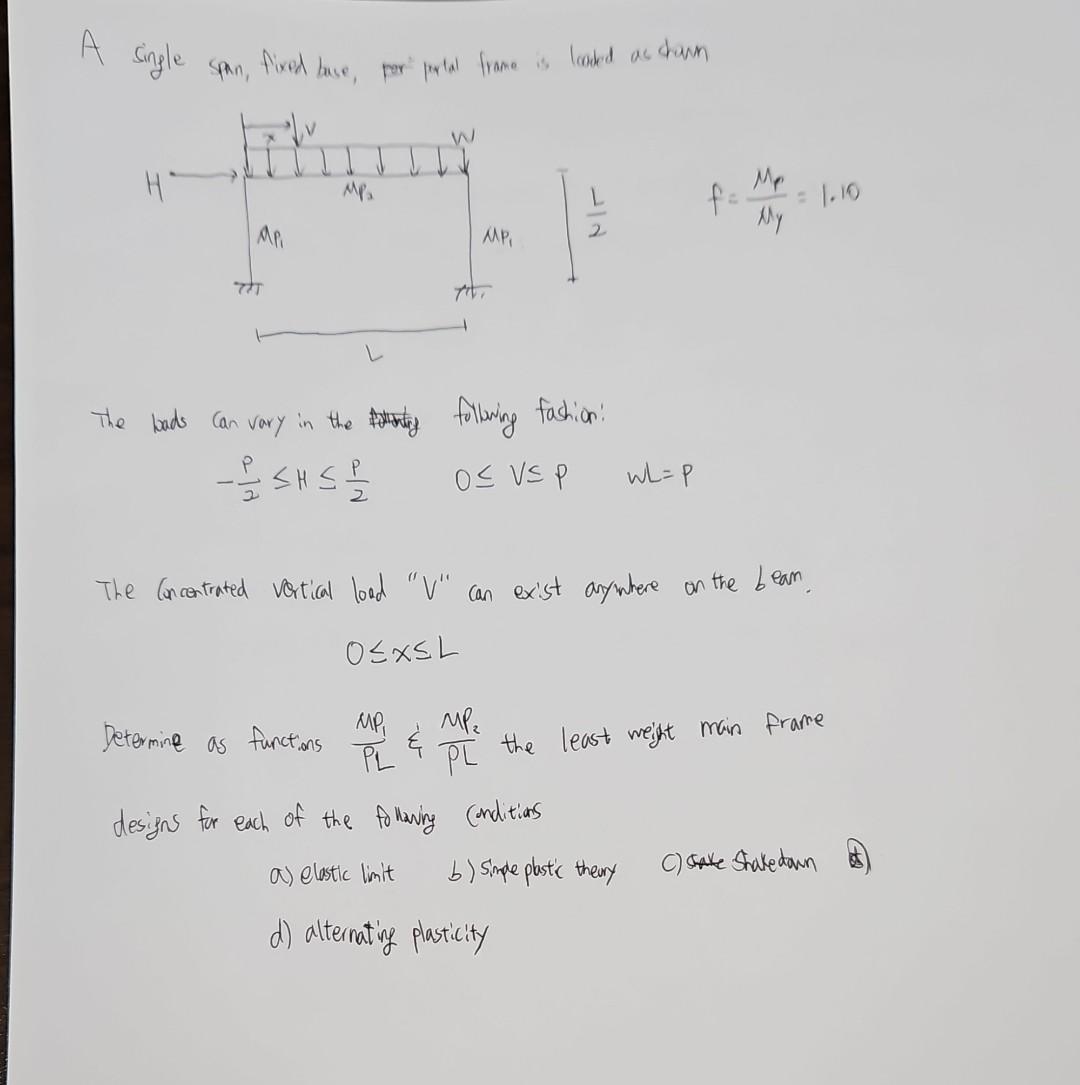 A single span, fixed base, portal frame is loaded as shown
x V W
H
MP₂
MP₁ MP₁
L/2
f = Mp/My = 1.10
L
The loads can vary in the following fashion:
-P/2 ≤ H ≤ P/2 0 ≤ V ≤ P wL = P
The Concentrated vertical load "V" can exist anywhere on the beam.
0 ≤ x ≤ L
Determine as functions MP₁/PL & MP₂/PL the least weight main frame
designs for each of the following Conditions
a) elastic limit b) Simple plastic theory c) Shakedown
d) alternating plasticity